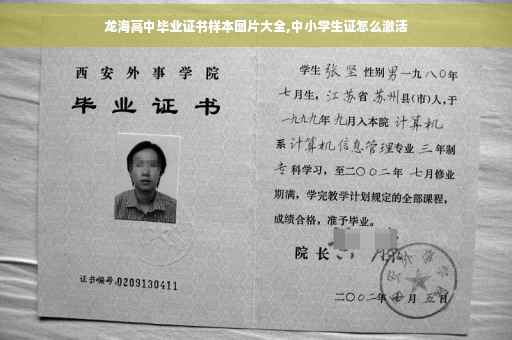 龙海高中毕业证书样本图片大全,中小学生证怎么激活
西安外事学院
毕业证书
证书编号:0209130411
学生 张坚 性别男一九八〇年
七月生，江苏省苏州县(市)人,于
一九九九年九月入本院 计算机
系计算机信息管理专业 三年制
专科学习，至二〇〇二年 七月修业
期满，学完教学计划规定的全部课程，
成绩合格，准予毕业。
院长
二〇〇二年 月五日